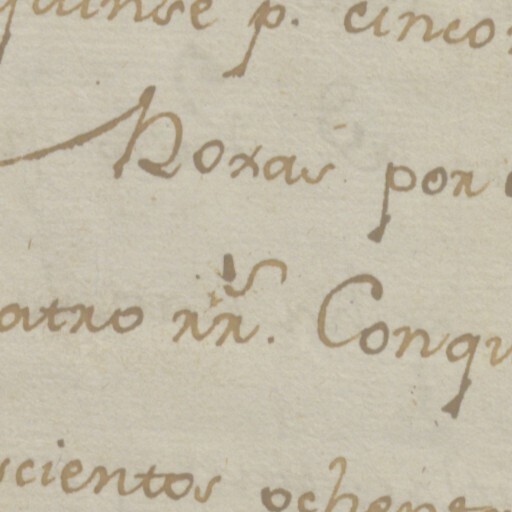 quinse p. cinco
Roxas por
atro rr.s Conqu
scientos ochent